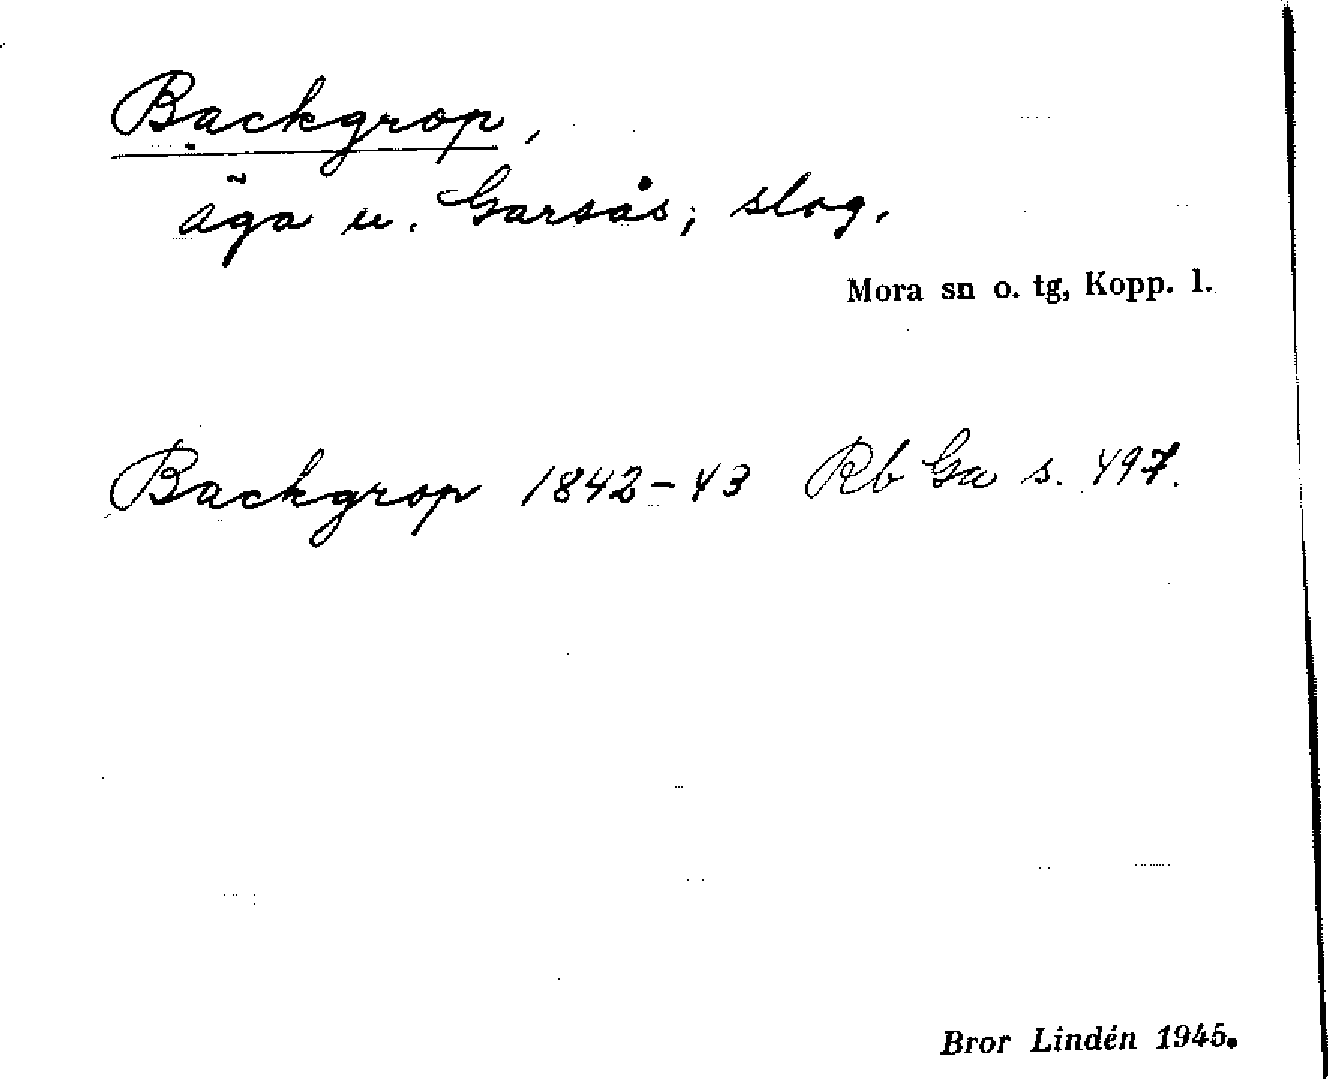 Backgrop,
äga u. Garsås; slog.
Mora sn o. tg, Kopp. l.
Backgrop 1842-43 Rb Ga s. 497.
Bror Lindén 1945.